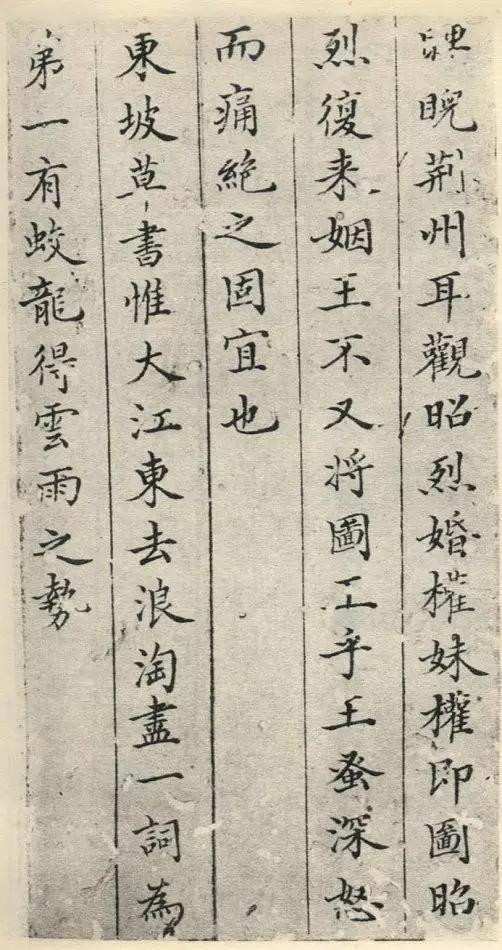 睥睨荆州耳觀昭烈婚權妹權即圖昭
烈復来姻王不又将圖工乎王蚤深怒
而痛絶之固宜也
東坡草書惟大江東去浪淘盡一詞為
弟一有蛟龍得雲雨之勢